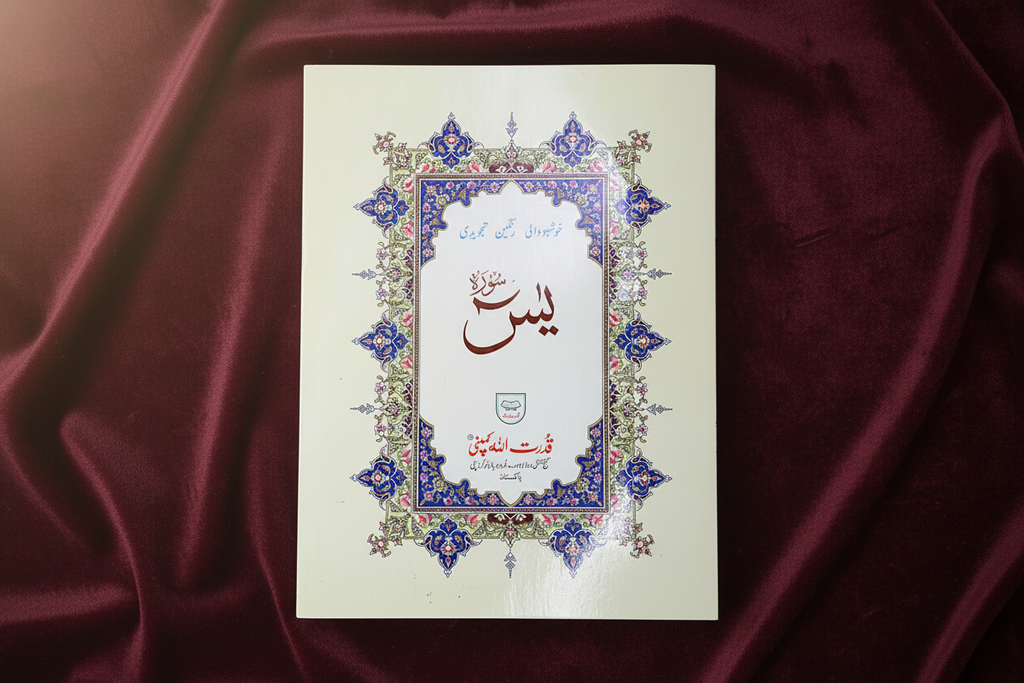 خوشبو والی رنگین تجویدی
سُوْرَۃُ
یٰسٓ
قُدرت اللہ کمپنی
پاکستان